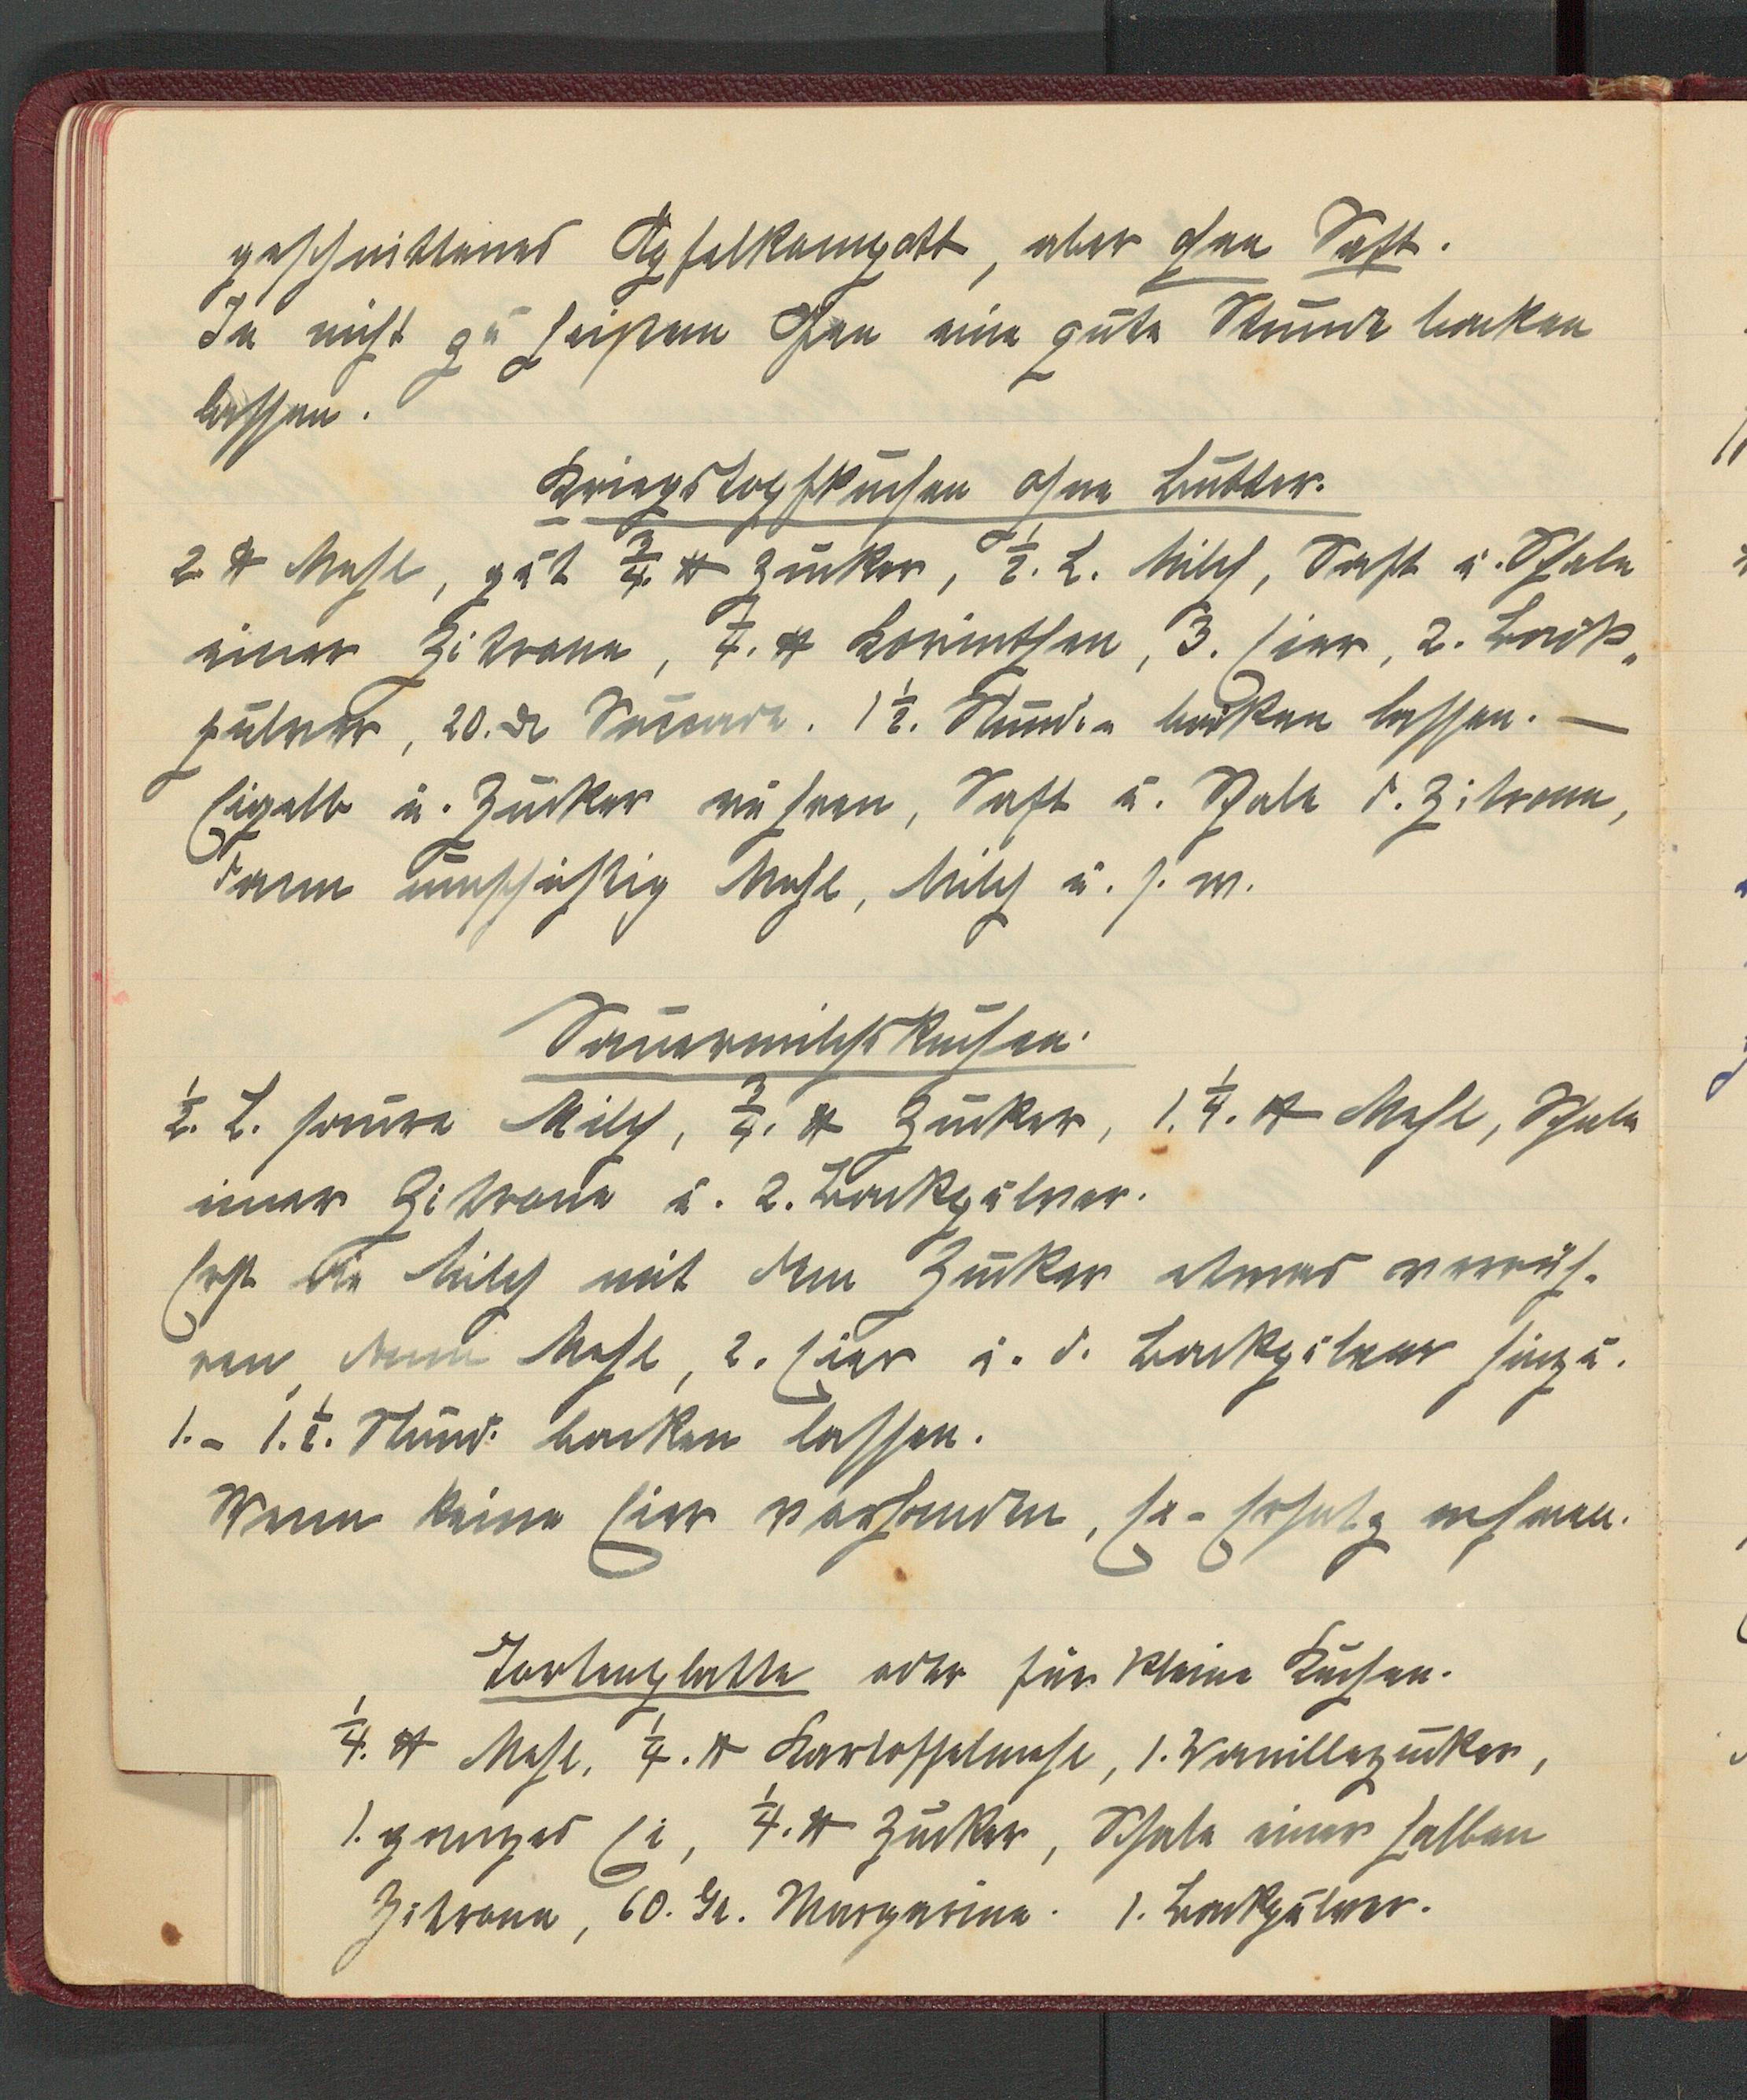 geschnittenes Apfelkompott, aber ohne Saft.
In nicht zu heißem Ofen eine gute Stunde backen
lassen.
Kriegstopfkuchen ohne Butter.
2 ℔ Mehl, gut 3/4. ℔ Zucker, 1/2. L. Milch, Saft u. Schale
einer Zitrone, 1/4. ℔ Korinthen, 3. Eier, 2. Back-
pulver, 20. Succade. 1 1/2. Stunden backen lassen. —
Eigelb u. Zucker rühren, Saft u. Schale d. Zitrone,
dann umschichtig Mehl, Milch u. s. w.
Sauermilchskuchen.
1/2. L. saure Milch, 3/4. ℔ Zucker, 1. 1/4. ℔ Mehl, Schale
einer Zitrone u. 2. Backpulver.
Erst die Milch mit dem Zucker etwas verrüh-
ren, dann Mehl, 2. Eier u. d. Backpulver hinzu.
1. - 1. 1/2. Stund. backen lassen.
Wenn keine Eier vorhanden, Ei-Ersatz nehmen.
Tortenplatte oder für kleine Kuchen.
1/4. ℔ Mehl, 1/4. ℔ Kartoffelmehl, 1. Vanillezucker,
1. ganzes Ei, 1/4. ℔ Zucker, Schale einer halben
Zitrone, 60. Gr. Margarine. 1. Backpulver.